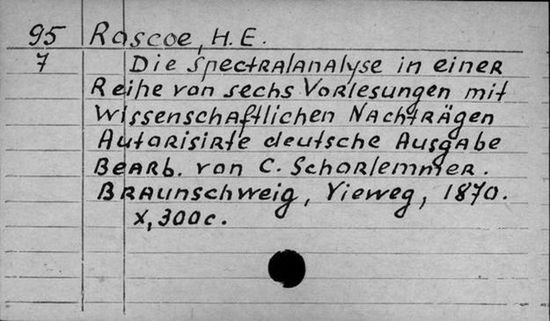 95 Roscoe, H. E.
7 Die Spectralanalyse in einer
Reihe von sechs Vorlesungen mit
Wissenschaftlichen Nachträgen
Autorisirte deutsche Ausgabe
Bearb. von C. Schorlemmer.
Braunschweig, Vieweg, 1870.
X, 300 c.